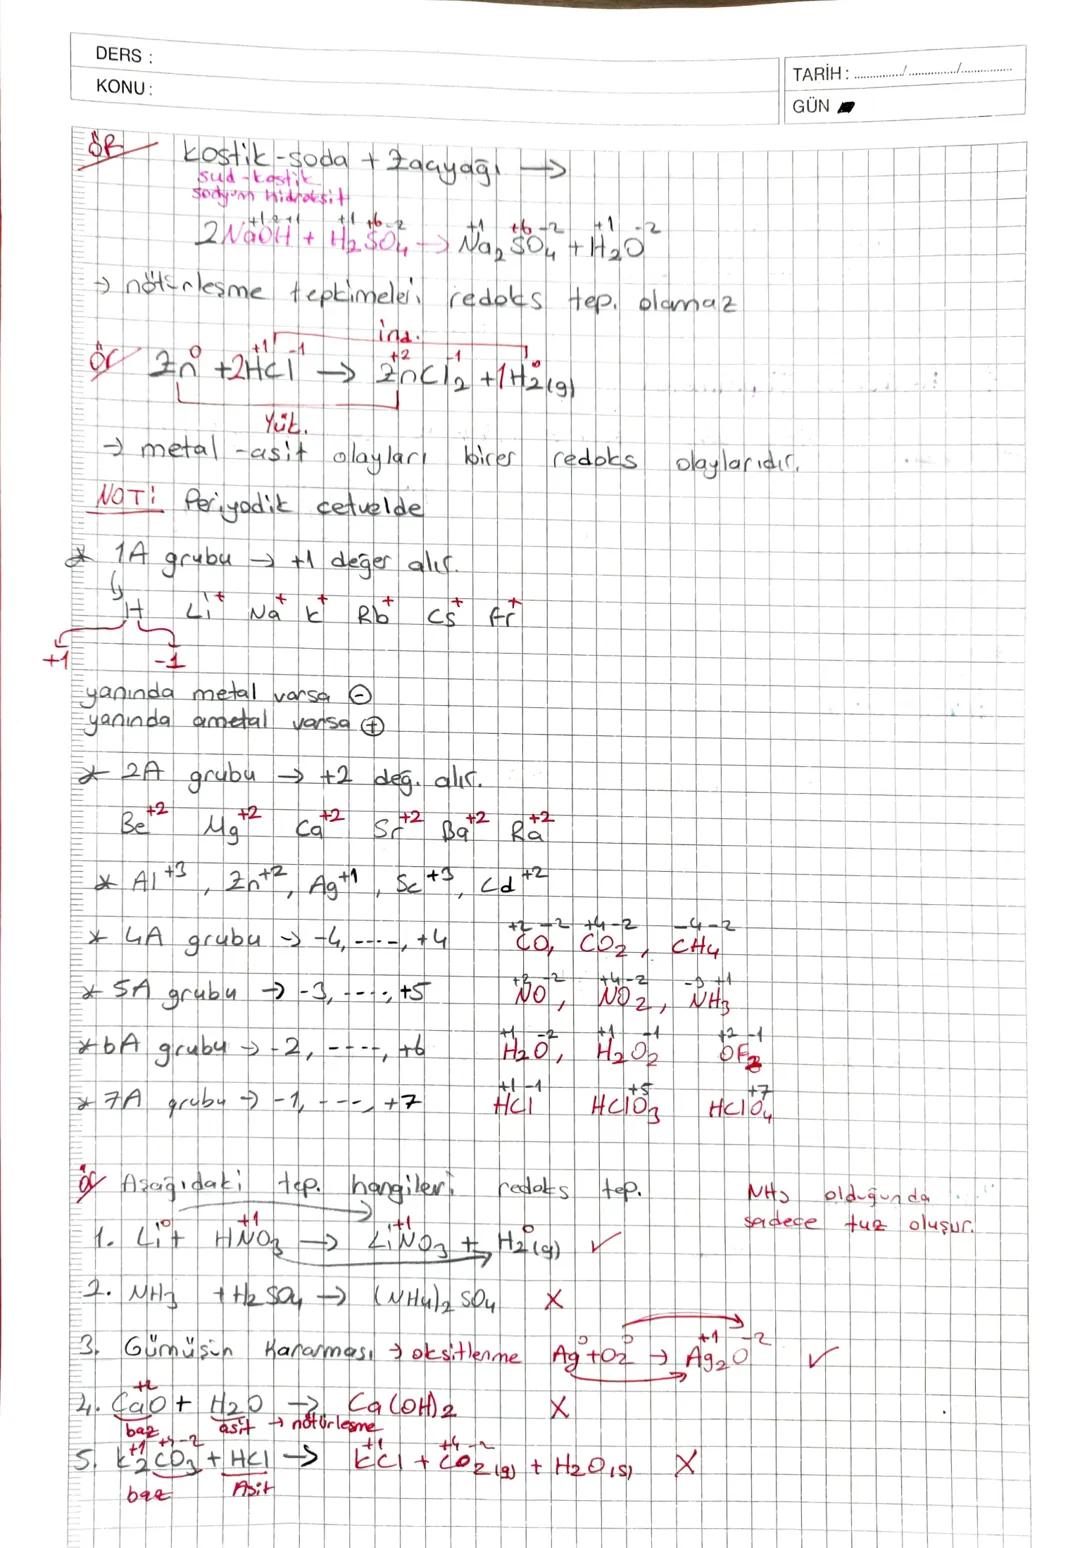 DERS :
KONU :
TARİH : ............../.............../...............
GÜN
ÖR Kostik-soda + Zaçyağı →
sud-kostik
sodyum hidroksit
+1-2+1 +1 +6 -2 +1 +6 -2 +1 -2
2NaOH + H₂SO₄ → Na₂SO₄ + H₂O
→ nötürleşme tepkimeleri redoks tep. olamaz
ind.
0 +1 -1 +2 -1 0
ör Zn + 2HCl → ZnCl₂ + 1H₂(g)
Yük.
→ metal-asit olayları birer redoks olaylarıdır.
NOT: Periyodik cetvelde
* 1A grubu → +1 değer alır.
H Li⁺ Na⁺ K⁺ Rb⁺ Cs⁺ Fr⁺
+1 -1
yanında metal varsa ⊖
yanında ametal varsa ⊕
* 2A grubu → +2 değ. alır.
Be⁺² Mg⁺² Ca⁺² Sr⁺² Ba⁺² Ra⁺²
* Al⁺³, Zn⁺², Ag⁺¹, Sc⁺³, Cd⁺²
+2 -2 +4 -2 -4 -2
* 4A grubu → -4, ----, +4 CO, CO₂, CH₄
-2 +4 -2 -3 +1
* 5A grubu → -3, ----, +5 NO, NO₂, NH₃
+1 -2 +1 -1 +2 -1
* 6A grubu → -2, ----, +6 H₂O, H₂O₂ OF₂
+1 -1 +5 +7
* 7A grubu → -1, ---, +7 HCl HClO₃ HClO₄
ör Aşağıdaki tep. hangileri redoks tep.
NH₃ olduğunda
sadece tuz oluşur.
0 +1 +1 0
1. Li + HNO₃ → LiNO₃ + H₂(g) ✓
2. NH₃ + H₂SO₄ → (NH₄)₂SO₄ X
0 0 +1 -2
3. Gümüşün Kararması → oksitlenme Ag + O₂ → Ag₂O ✓
+2
4. CaO + H₂O → Ca(OH)₂ X
baz asit → nötürleşme
+1 +4 -2 +1 +4 -2
5. K₂CO₃ + HCl → KCl + CO₂(g) + H₂O(s) X
baz Asit